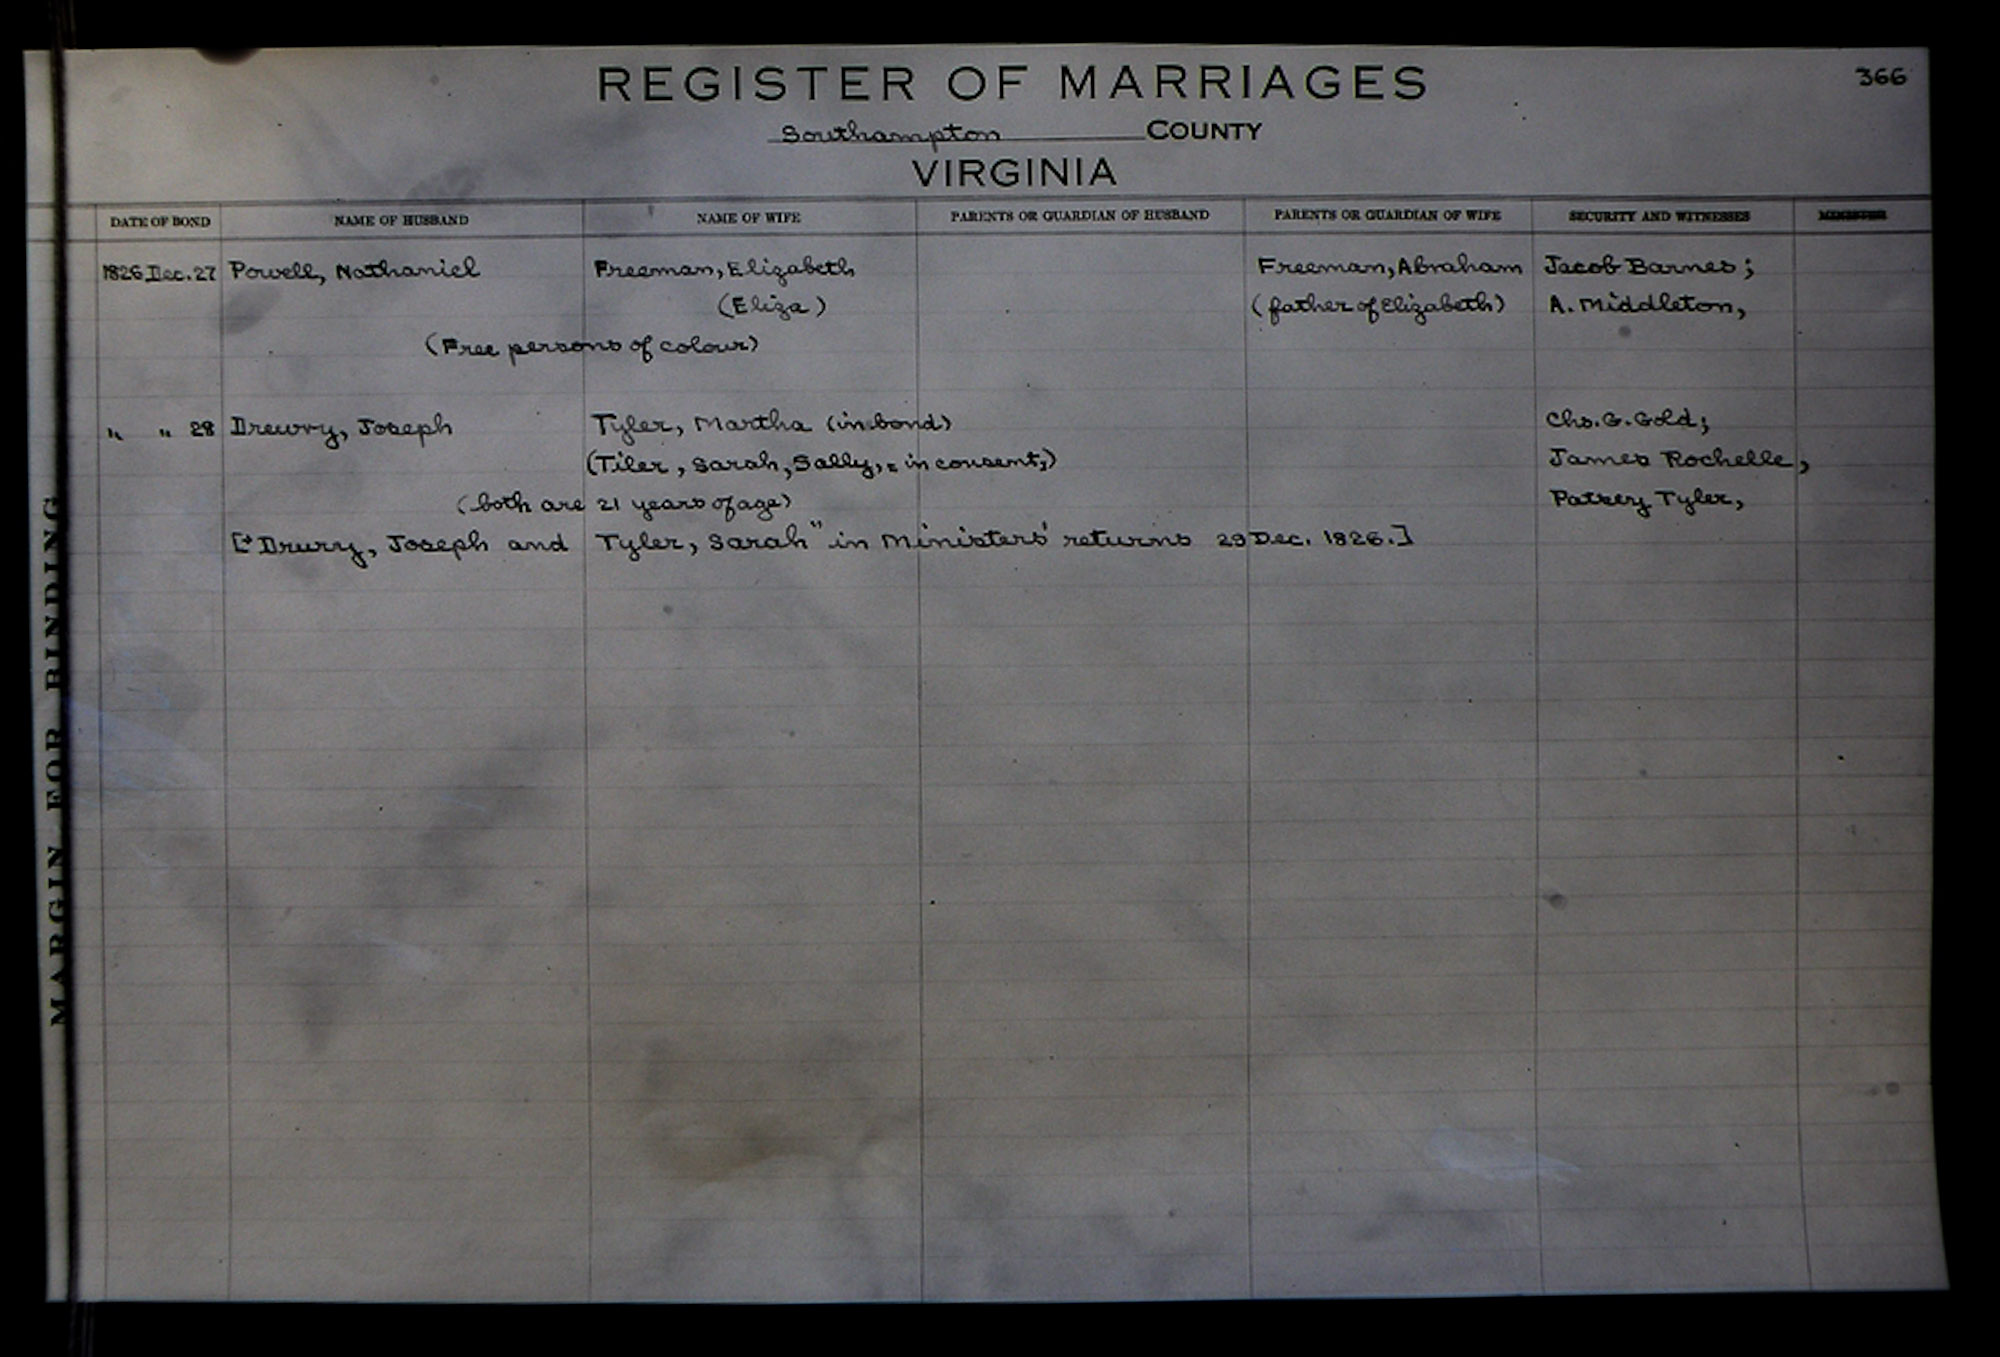 366
REGISTER OF MARRIAGES
Southampton COUNTY
VIRGINIA
DATE OF BOND NAME OF HUSBAND NAME OF WIFE PARENTS OR GUARDIAN OF HUSBAND PARENTS OR GUARDIAN OF WIFE SECURITY AND WITNESSES MINISTER
1826 Dec. 27 Powell, Nathaniel Freeman, Elizabeth Freeman, Abraham Jacob Barnes;
(Eliza) (father of Elizabeth) A. Middleton,
(Free persons of colour)
" " 28 Drewry, Joseph Tyler, Martha (in bond) Chs. G. Gold;
(Tiler, Sarah, Sally, = in consent;) James Rochelle,
(both are 21 years of age) Patsey Tyler,
["Drury, Joseph and Tyler, Sarah" in Ministers' returns 29 Dec. 1826.]
MARGIN FOR BINDING